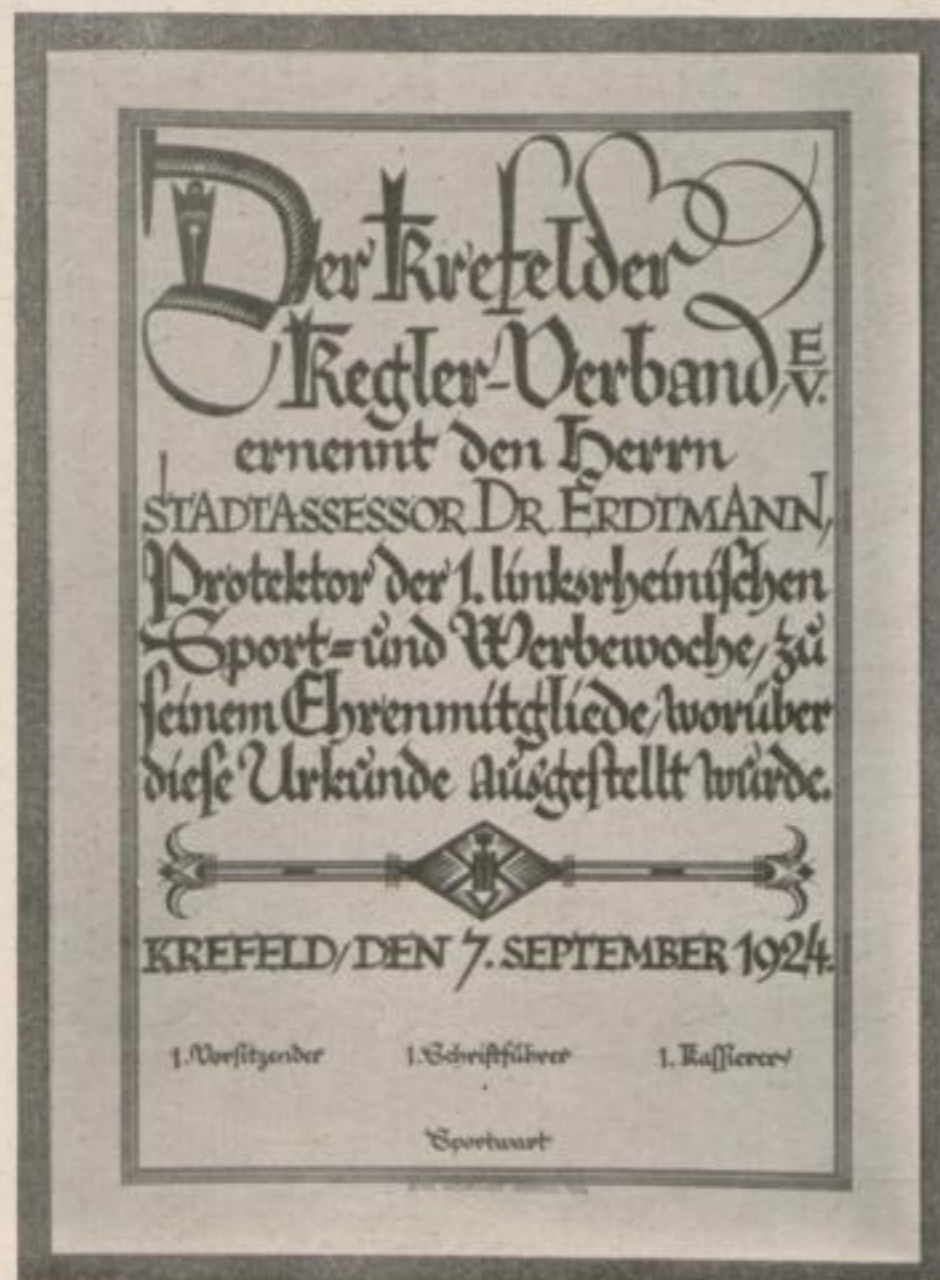 Der Krefelder
Kegler-Verband, E.V.
ernennt den Herrn
STADTASSESSOR DR. ERDTMANN,
Protektor der 1. linksrheinischen
Sport= und Werbewoche, zu
seinem Ehrenmitgliede, worüber
diese Urkunde ausgestellt wurde.
KREFELD, DEN 7. SEPTEMBER 1924.
1. Vorsitzender 1. Schriftführer 1. Kassierer
Sportwart